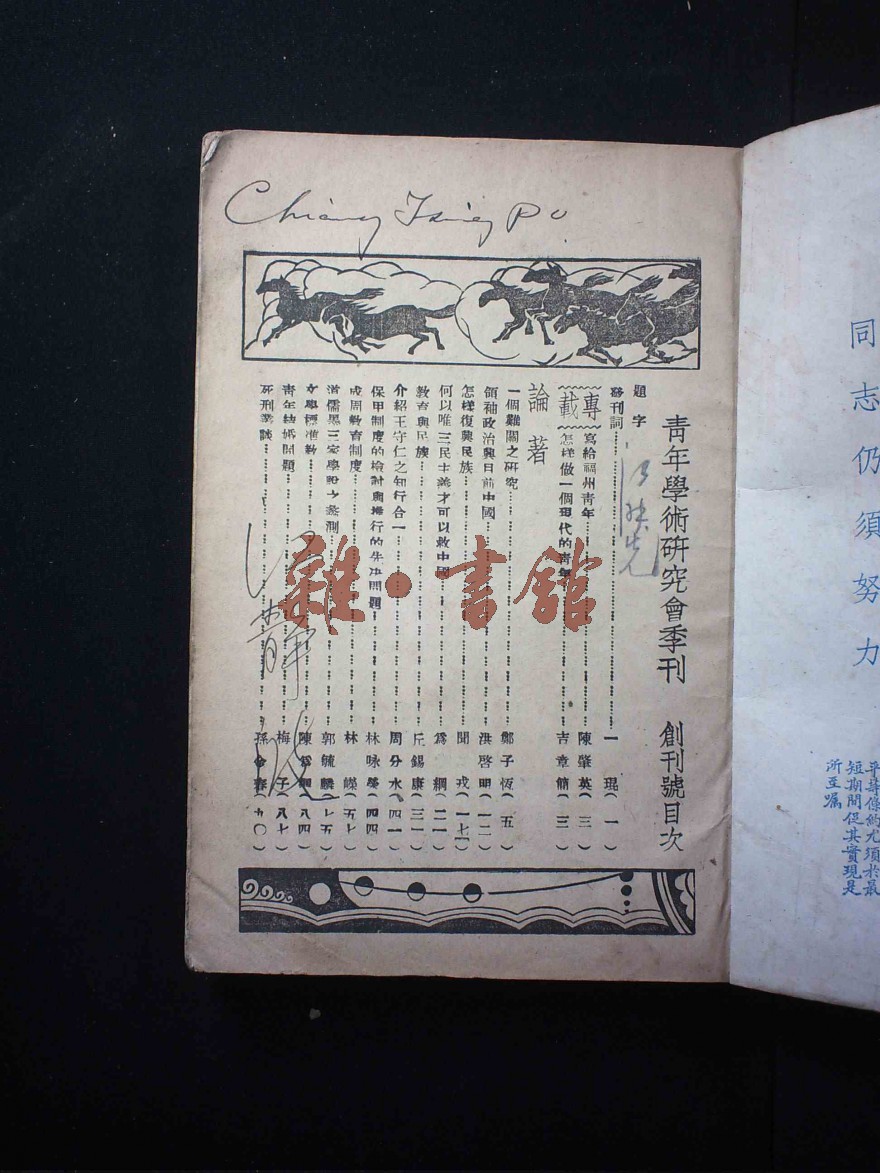 Chiang Tsing Po
青年學術研究會季刊 創刊號目次
題字
發刊詞 一琨(一)
專載
寫給福州青年 陳肇英(三)
怎樣做一個現代的青年 吉章簡(三)
論著
一個難關之研究 鄭子恆(五)
領袖政治與目前中國 洪啓明(一二)
怎樣復興民族 聞戎(一七)
何以唯三民主義才可以救中國 爲綱(二一)
教育與民族 丘錫康(三一)
介紹王守仁之知行合一 周分水(四一)
保甲制度的檢討與推行的先決問題 林咏榮(四四)
成周教育制度 林(五七)
道儒墨三家學說之蠡測 郭毓麟(七五)
文學標準 陳爲綱(八四)
青年結婚問題 梅子(八七)
死刑業談 孫(九〇)
雜·書館
同志仍須努力
平等條約尤須於最
短期間促其實現是
所至囑